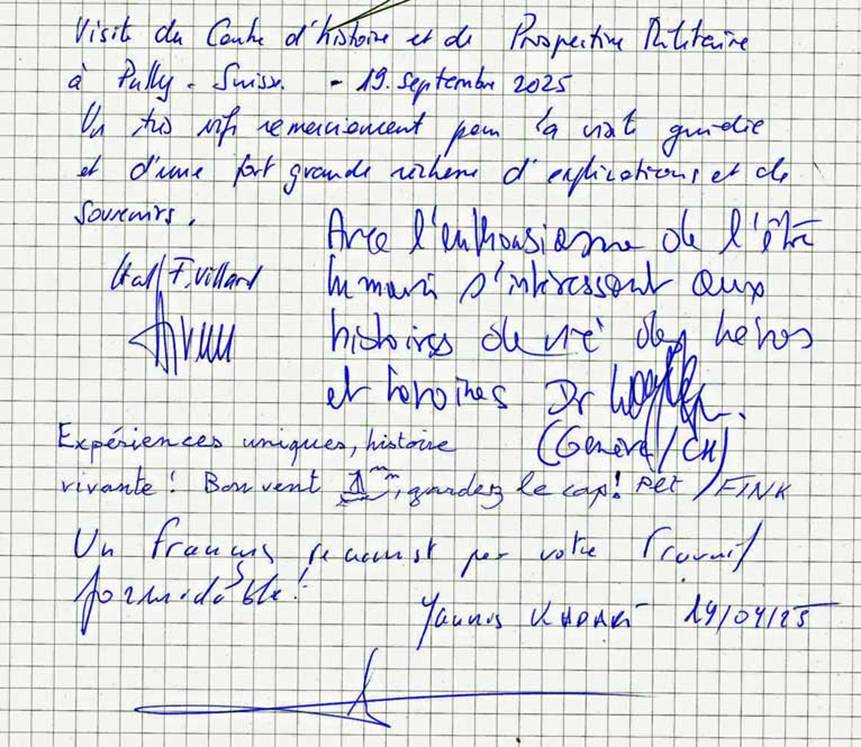 Visite du Centre d'histoire et de Prospective Militaire
à Pully - Suisse. - 19. septembre 2025
Un très vif remerciement pour la visite guidée
et d'une fort grande richesse d'explications et de
souvenirs.
Avec l'enthousiasme de l'être
humain s'intéressant aux
histoires de vie des héros
et héroïnes Dr
(Genève/CH)
F. Villard
Expériences uniques, histoire
vivante! Bon vent, gardez le cap! FINK
Un français reconnaissant par votre Travail
formidable!
Yannis KADARI 19/09/25